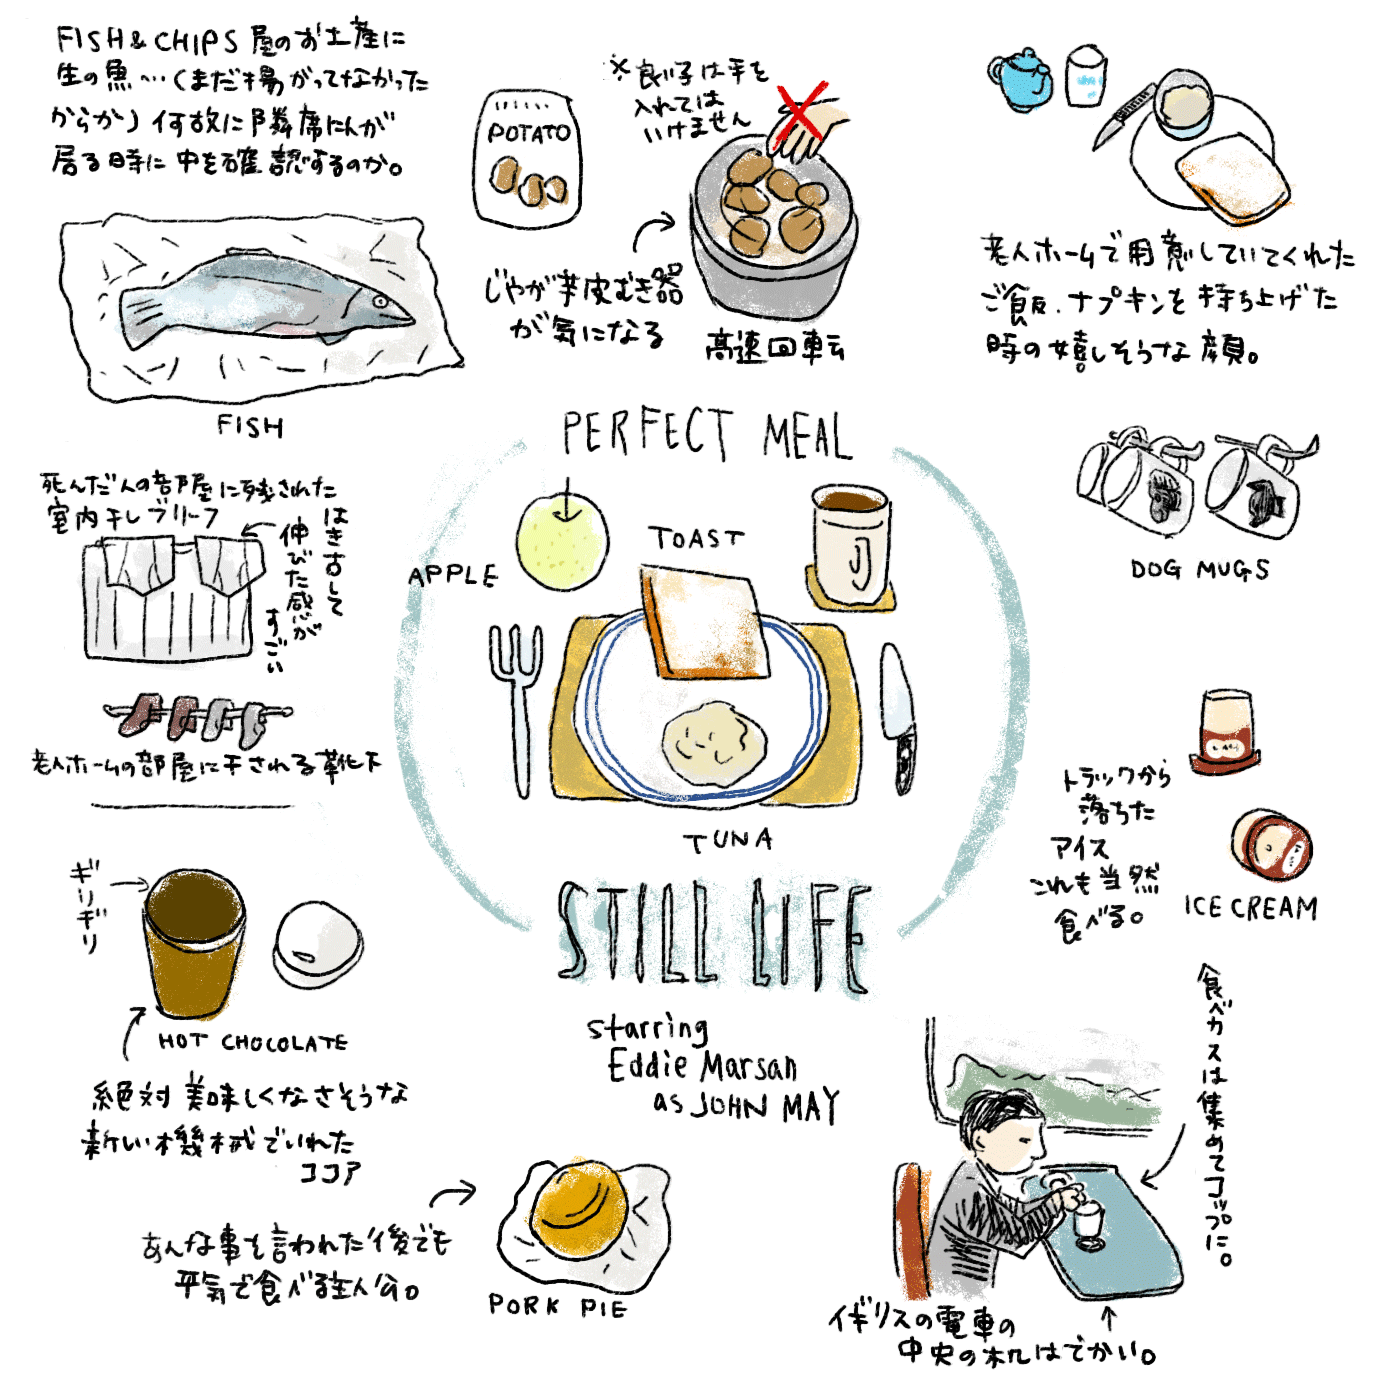 FISH & CHIPS 屋のお土産に
生の魚…（まだ揚がってなかった
からか）何故に隣席に人が
居る時に中を確認するのか。
FISH
POTATO
※良い子は手を
入れては
いけません
じゃが芋皮むき器
が気になる
高速回転
老人ホームで用意していてくれた
ご飯.ナプキンを持ち上げた
時の嬉しそうな顔。
DOG MUGS
死んだ人の部屋に残された
室内干しブリーフ
はき古して
伸びた感じが
すごい
老人ホームの部屋に干される靴下
PERFECT MEAL
APPLE
TOAST
TUNA
STILL LIFE
starring
Eddie Marsan
as JOHN MAY
トラックから
落ちた
アイス
これも当然
食べる。
ICE CREAM
ギリギリ
HOT CHOCOLATE
絶対美味しくなさそうな
新しい機械でいれた
ココア
あんな事を言われた後でも
平気で食べる主人公。
PORK PIE
食べカスは集めてコップに。
イギリスの電車の
中央の机はでかい。